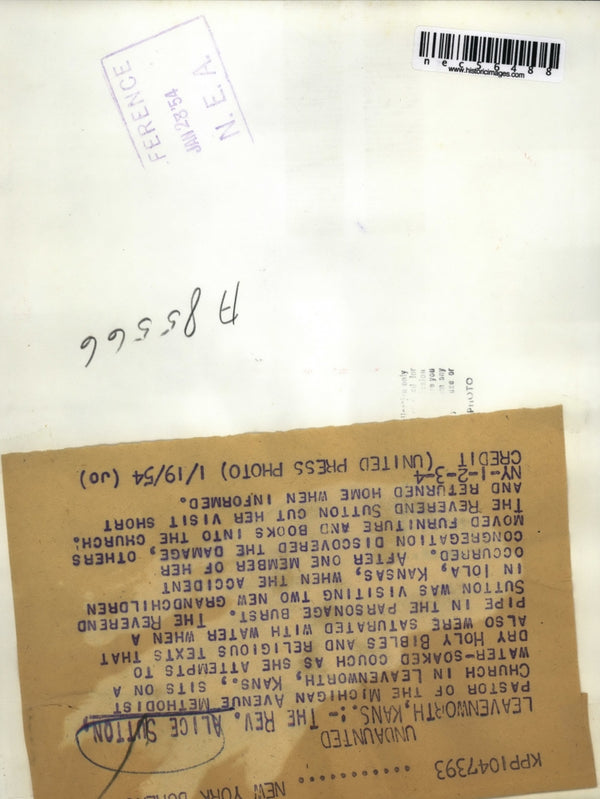 nec56488
www.historicimages.com
FERENCE
JAN 28 '54
N. E. A.
A 85566
PHOTO
KPP1047393 .......... NEW YORK
UNDAUNTED
LEAVENWORTH, KANS.:- THE REV. ALICE SUTTON,
PASTOR OF THE MICHIGAN AVENUE METHODIST
CHURCH IN LEAVENWORTH, KANS., SITS ON A
WATER-SOAKED COUCH AS SHE ATTEMPTS TO
DRY HOLY BIBLES AND RELIGIOUS TEXTS THAT
ALSO WERE SATURATED WITH WATER WHEN A
PIPE IN THE PARSONAGE BURST. THE REVEREND
SUTTON WAS VISITING TWO NEW GRANDCHILDREN
IN IOLA, KANSAS, WHEN THE ACCIDENT
OCCURRED. AFTER ONE MEMBER OF HER
CONGREGATION DISCOVERED THE DAMAGE, OTHERS
MOVED FURNITURE AND BOOKS INTO THE CHURCH.
THE REVEREND SUTTON CUT HER VISIT SHORT
AND RETURNED HOME WHEN INFORMED.
NY-1-2-3-4
CREDIT (UNITED PRESS PHOTO) 1/19/54 (JO)